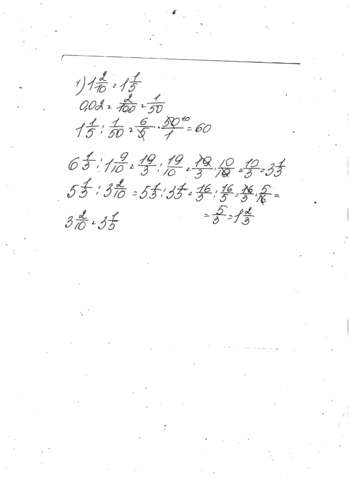 1) 1 2/10 = 1 1/5
0,02 = 2/100 = 1/50
1 1/5 : 1/50 = 6/5 · 50 10/1 = 60
6 1/3 : 1 9/10 = 19/3 : 19/10 = 19/3 · 10/19 = 10/3 = 3 1/3
5 1/3 : 3 2/10 = 5 1/3 : 3 1/5 = 16/3 : 16/5 = 16/3 · 5/16 =
= 5/3 = 1 2/3
3 2/10 = 3 1/5